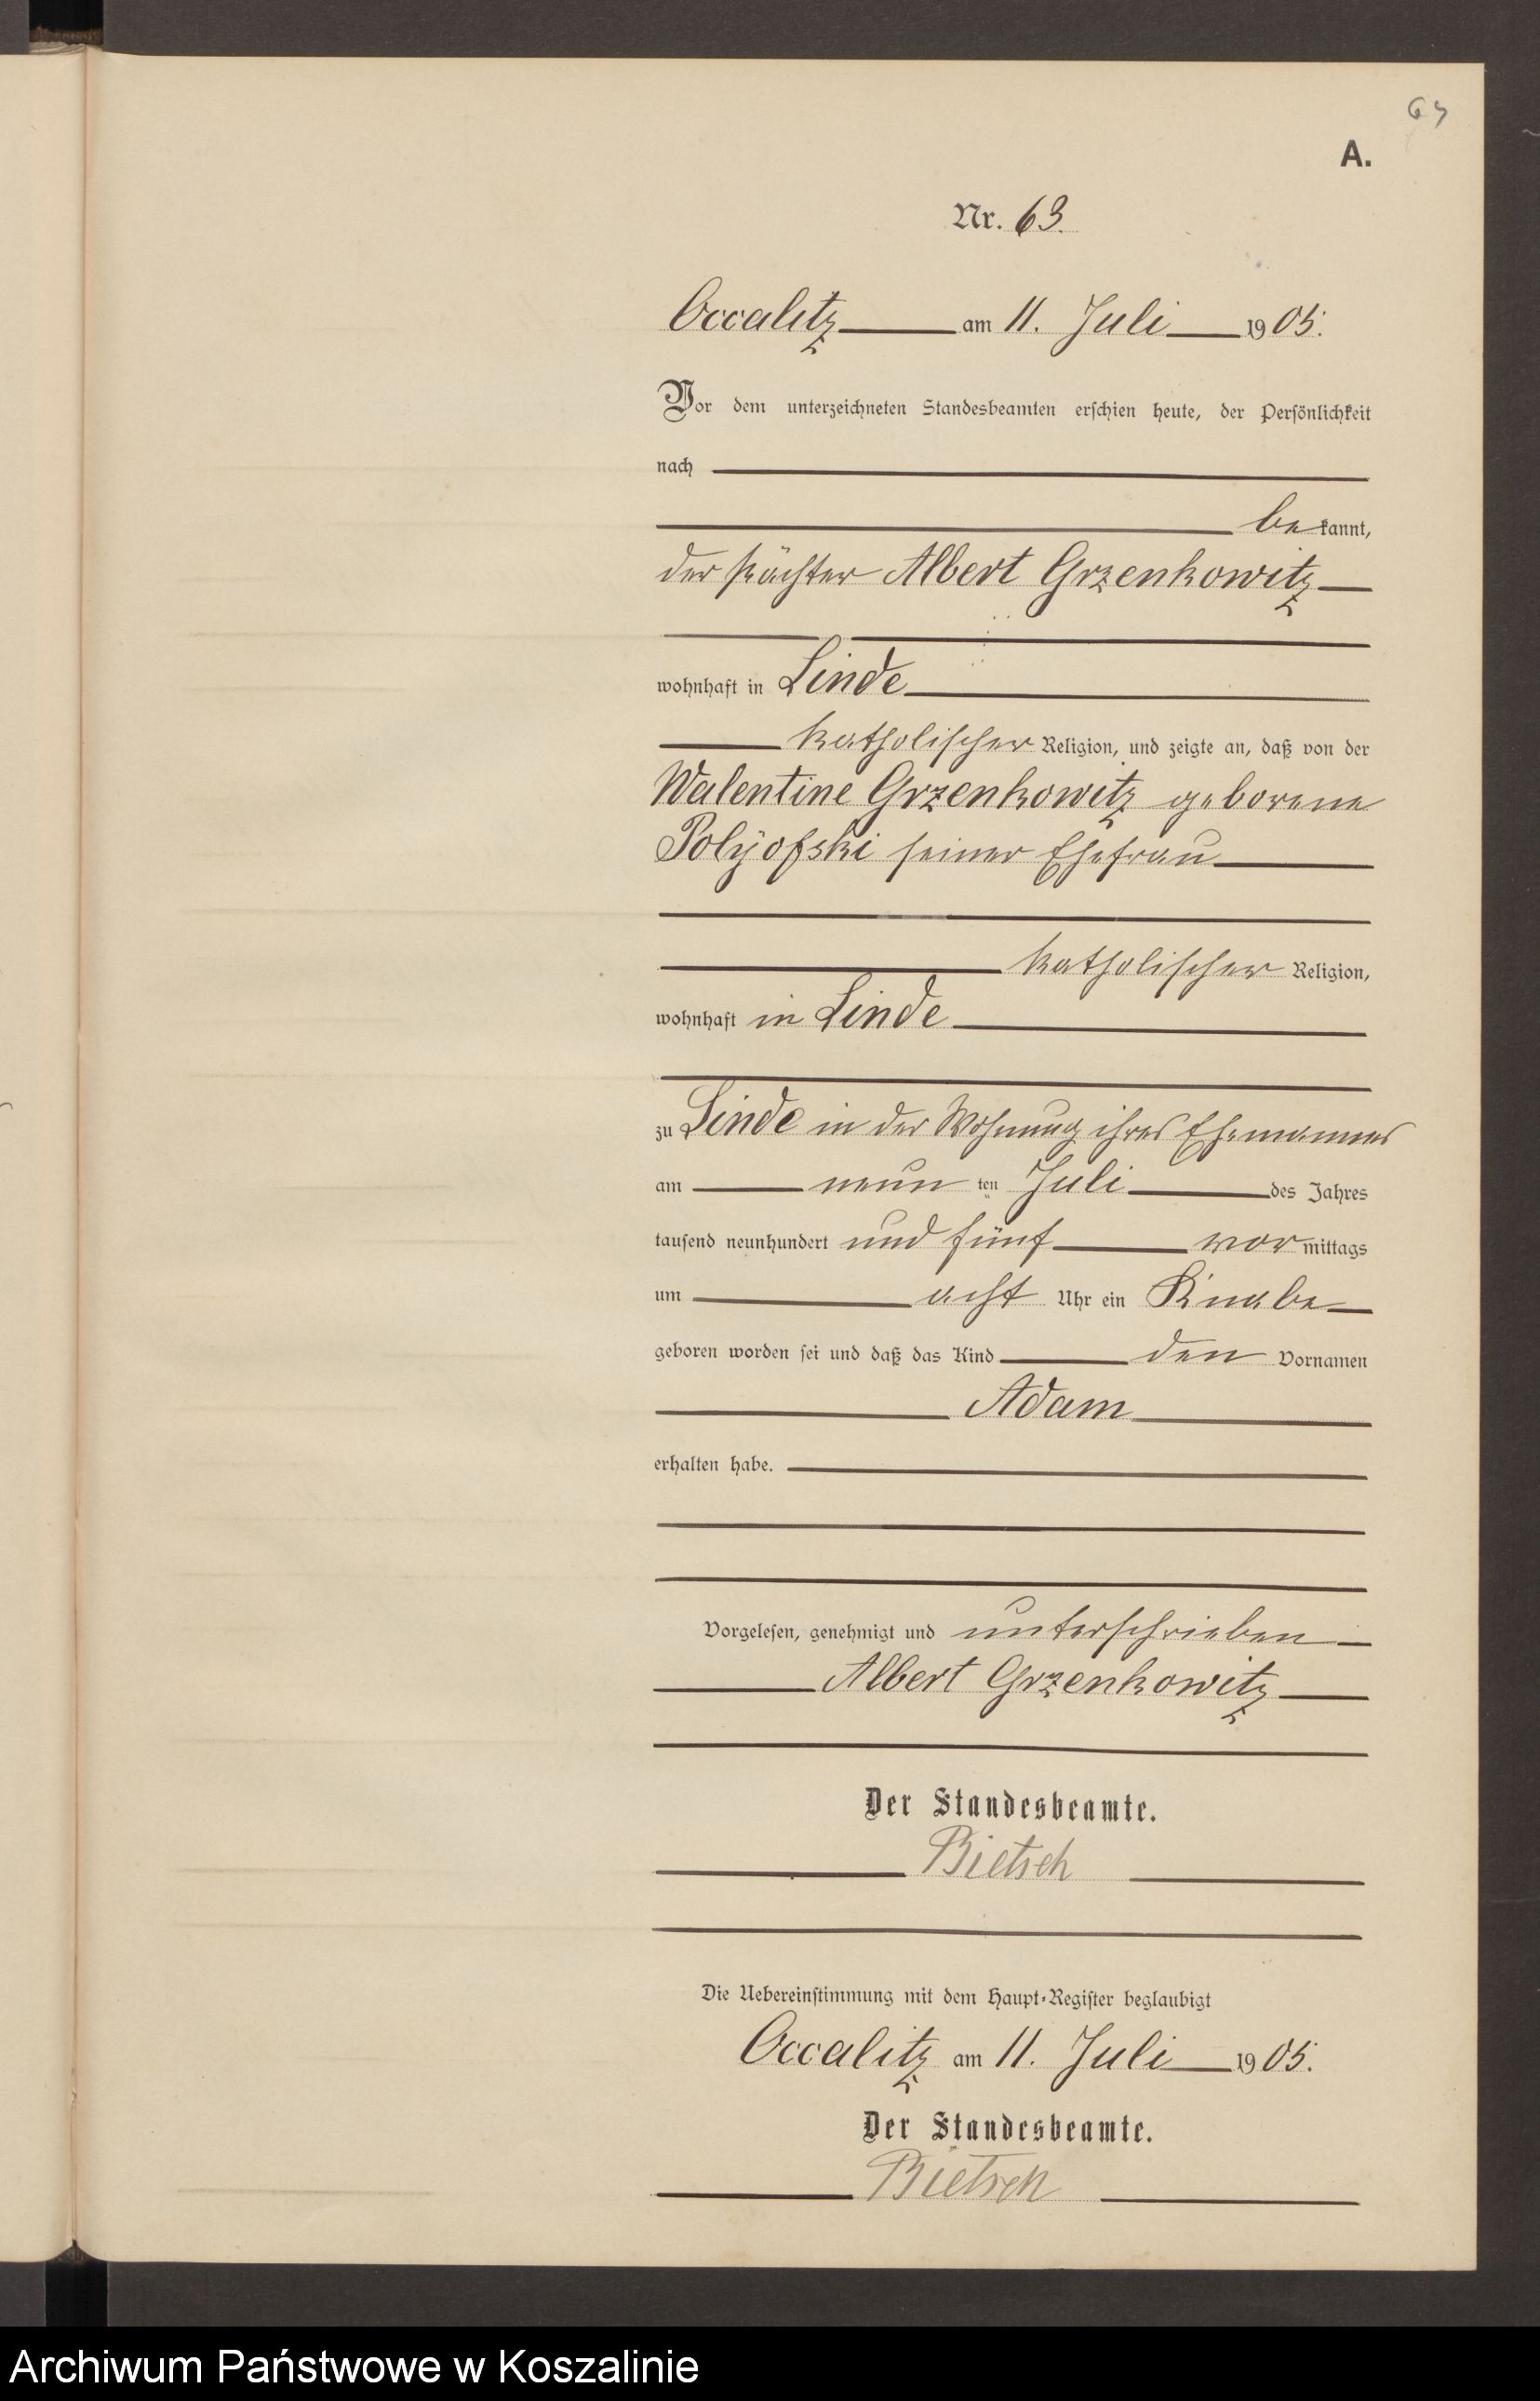 A.
Nr. 63.
Occalitz am 11. Juli 1905.
Vor dem unterzeichneten Standesbeamten erschien heute, der Persönlichkeit
nach
be kannt,
der Pächter Albert Grzenkowitz
wohnhaft in Linde
katholischer Religion, und zeigte an, daß von der
Walentine Grzenkowitz geborene
Polÿofski seiner Ehefrau
katholischer Religion,
wohnhaft in Linde
zu Linde in der Wohnung ihres Ehemannes
am neun ten Juli des Jahres
tausend neunhundert und fünf vor mittags
um acht Uhr ein Knabe
geboren worden sei und daß das Kind den Vornamen
Adam
erhalten habe.
Vorgelesen, genehmigt und unterschrieben
Albert Grzenkowitz
Der Standesbeamte.
Bietsch
Die Uebereinstimmung mit dem Haupt-Register beglaubigt
Occalitz am 11. Juli 1905.
Der Standesbeamte.
Bietsch
Archiwum Państwowe w Koszalinie